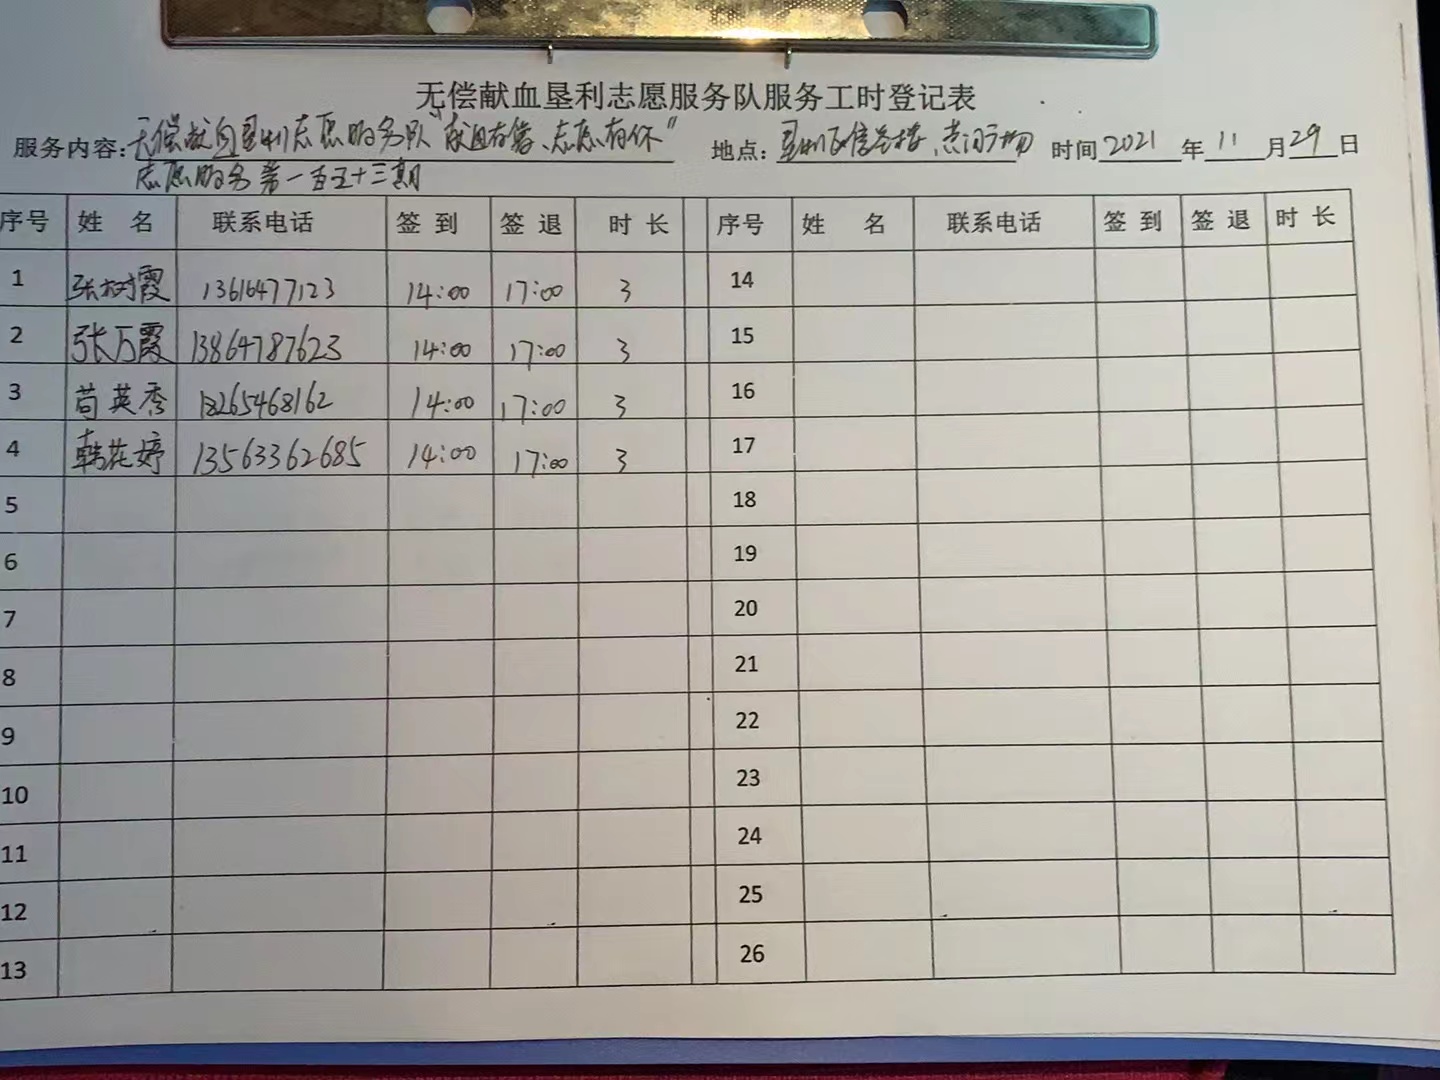 无偿献血垦利志愿服务队服务工时登记表
服务内容：无偿献血垦利志愿服务队“献血有爱、志愿有你” 地点： 时间 2021 年 11 月 29 日
志愿服务第一百五十三期
序号 姓 名 联系电话 签 到 签 退 时 长 序号 姓 名 联系电话 签 到 签 退 时 长
1 张树霞 13616477123 14:00 17:00 3 14
2 张万霞 13864787623 14:00 17:00 3 15
3 苟英秀 18265468162 14:00 17:00 3 16
4 韩花婷 13563362685 14:00 17:00 3 17
5 18
6 19
7 20
8 21
9 22
10 23
11 24
12 25
13 26